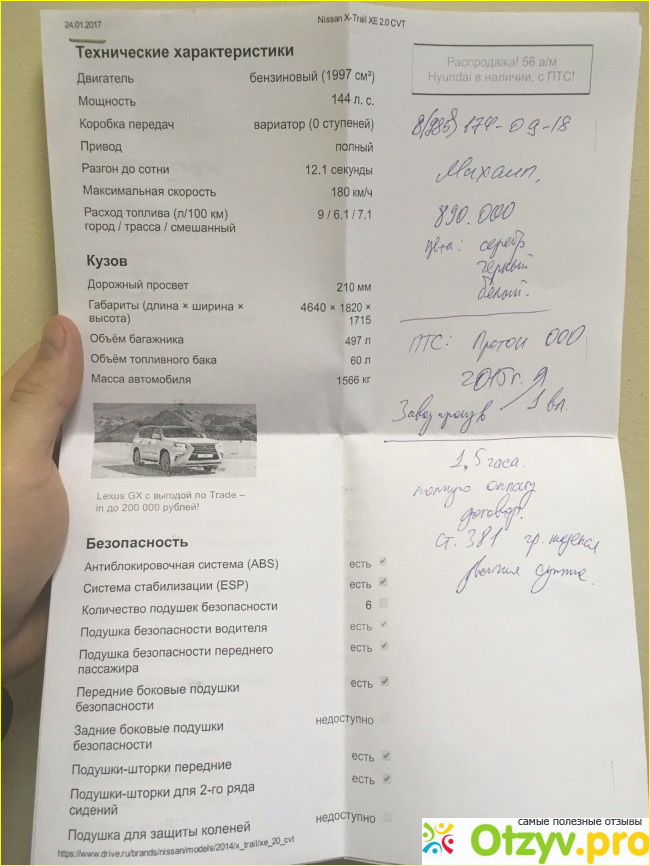 24.01.2017
Nissan X-Trail XE 2.0 CVT
Технические характеристики
Двигатель бензиновый (1997 см³)
Мощность 144 л. с.
Коробка передач вариатор (0 ступеней)
Привод полный
Разгон до сотни 12.1 секунды
Максимальная скорость 180 км/ч
Расход топлива (л/100 км) 9 / 6.1 / 7.1
город / трасса / смешанный
Кузов
Дорожный просвет 210 мм
Габариты (длина × ширина × 4640 × 1820 ×
высота) 1715
Объём багажника 497 л
Объём топливного бака 60 л
Масса автомобиля 1566 кг
Lexus GX с выгодой по Trade –
in до 200 000 рублей!
Безопасность
Антиблокировочная система (ABS) есть
Система стабилизации (ESP) есть
Количество подушек безопасности 6
Подушка безопасности водителя есть
Подушка безопасности переднего есть
пассажира
Передние боковые подушки есть
безопасности
Задние боковые подушки недоступно
безопасности
Подушки-шторки передние есть
Подушки-шторки для 2-го ряда есть
сидений
Подушка для защиты коленей недоступно
https://www.drive.ru/brands/nissan/models/2014/x_trail/xe_20_cvt
Распродажа! 56 а/м
Hyundai в наличии, с ПТС!
8(985) 174-09-18
Михаил,
890.000
цвета: серебр
черный
белый.
ПТС: ООО
2015г.
1 вл.
1,5 часа.
полную оплату
договор.
ст. 381 гр. кодекса
двойная сумма.
самые полезные отзывы
Otzyv.pro